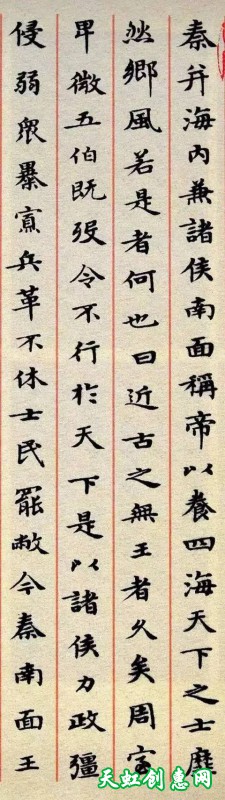 秦并海內兼諸侯南面稱帝以養四海天下之士靡
然鄉風若是者何也曰近古之無王者久矣周室
卑微五伯既歿令不行於天下是以諸侯力政彊
侵弱眾暴寡兵革不休士民罷敝今秦南面王
天虹创意网